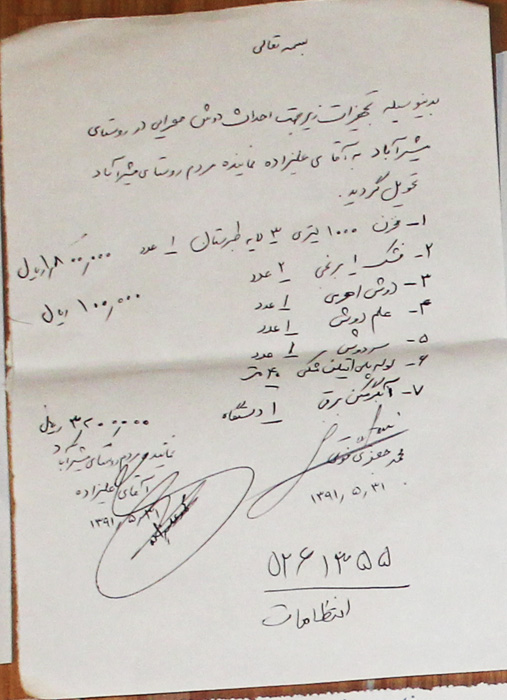 بسمه تعالی
بدینوسیله تجهیزات زیر جهت احداث دوش صحرایی در روستای
بشیرآباد به آقای علیزاده نماینده مردم روستای بشیرآباد
تحویل گردید.
۱- مخزن ۱۰۰۰ لیتری ۳ لایه طبرستان ۱ عدد ۱٫۸۰۰٫۰۰۰ ریال
۲- ۲ عدد
۳- دوش اهرمی ۱ عدد ۱۰۰٫۰۰۰ ریال
۴- علم دوش ۱ عدد
۵- سردوش ۱ عدد
۶- لوله پلی اتیلن مشکی ۴۰ متر
۷- آبگرمکن برقی ۱ دستگاه ۳٫۲۰۰٫۰۰۰ ریال
نماینده مردم روستای بشیرآباد
آقای علیزاده
۱۳۹۱٫۵٫۳۱
محمد جعفری
۱۳۹۱٫۵٫۳۱
۵۲۶۱۳۵۵
انتظامات